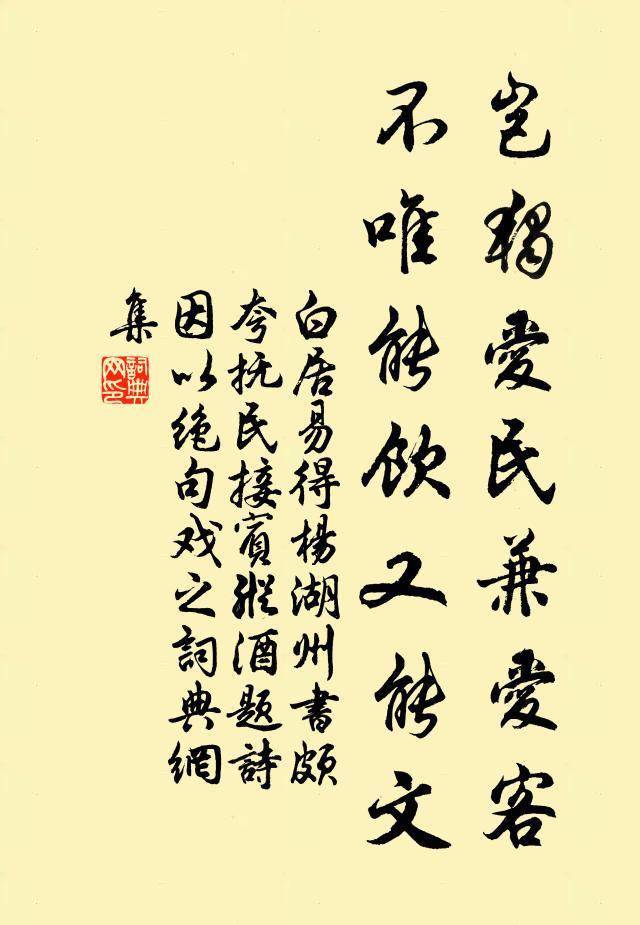 豈獨愛民兼愛客
不唯能飲又能文
白居易得楊湖州書頗
夸抚民接賓縱酒題詩
因以绝句戏之詞典網
集
詞典
网印